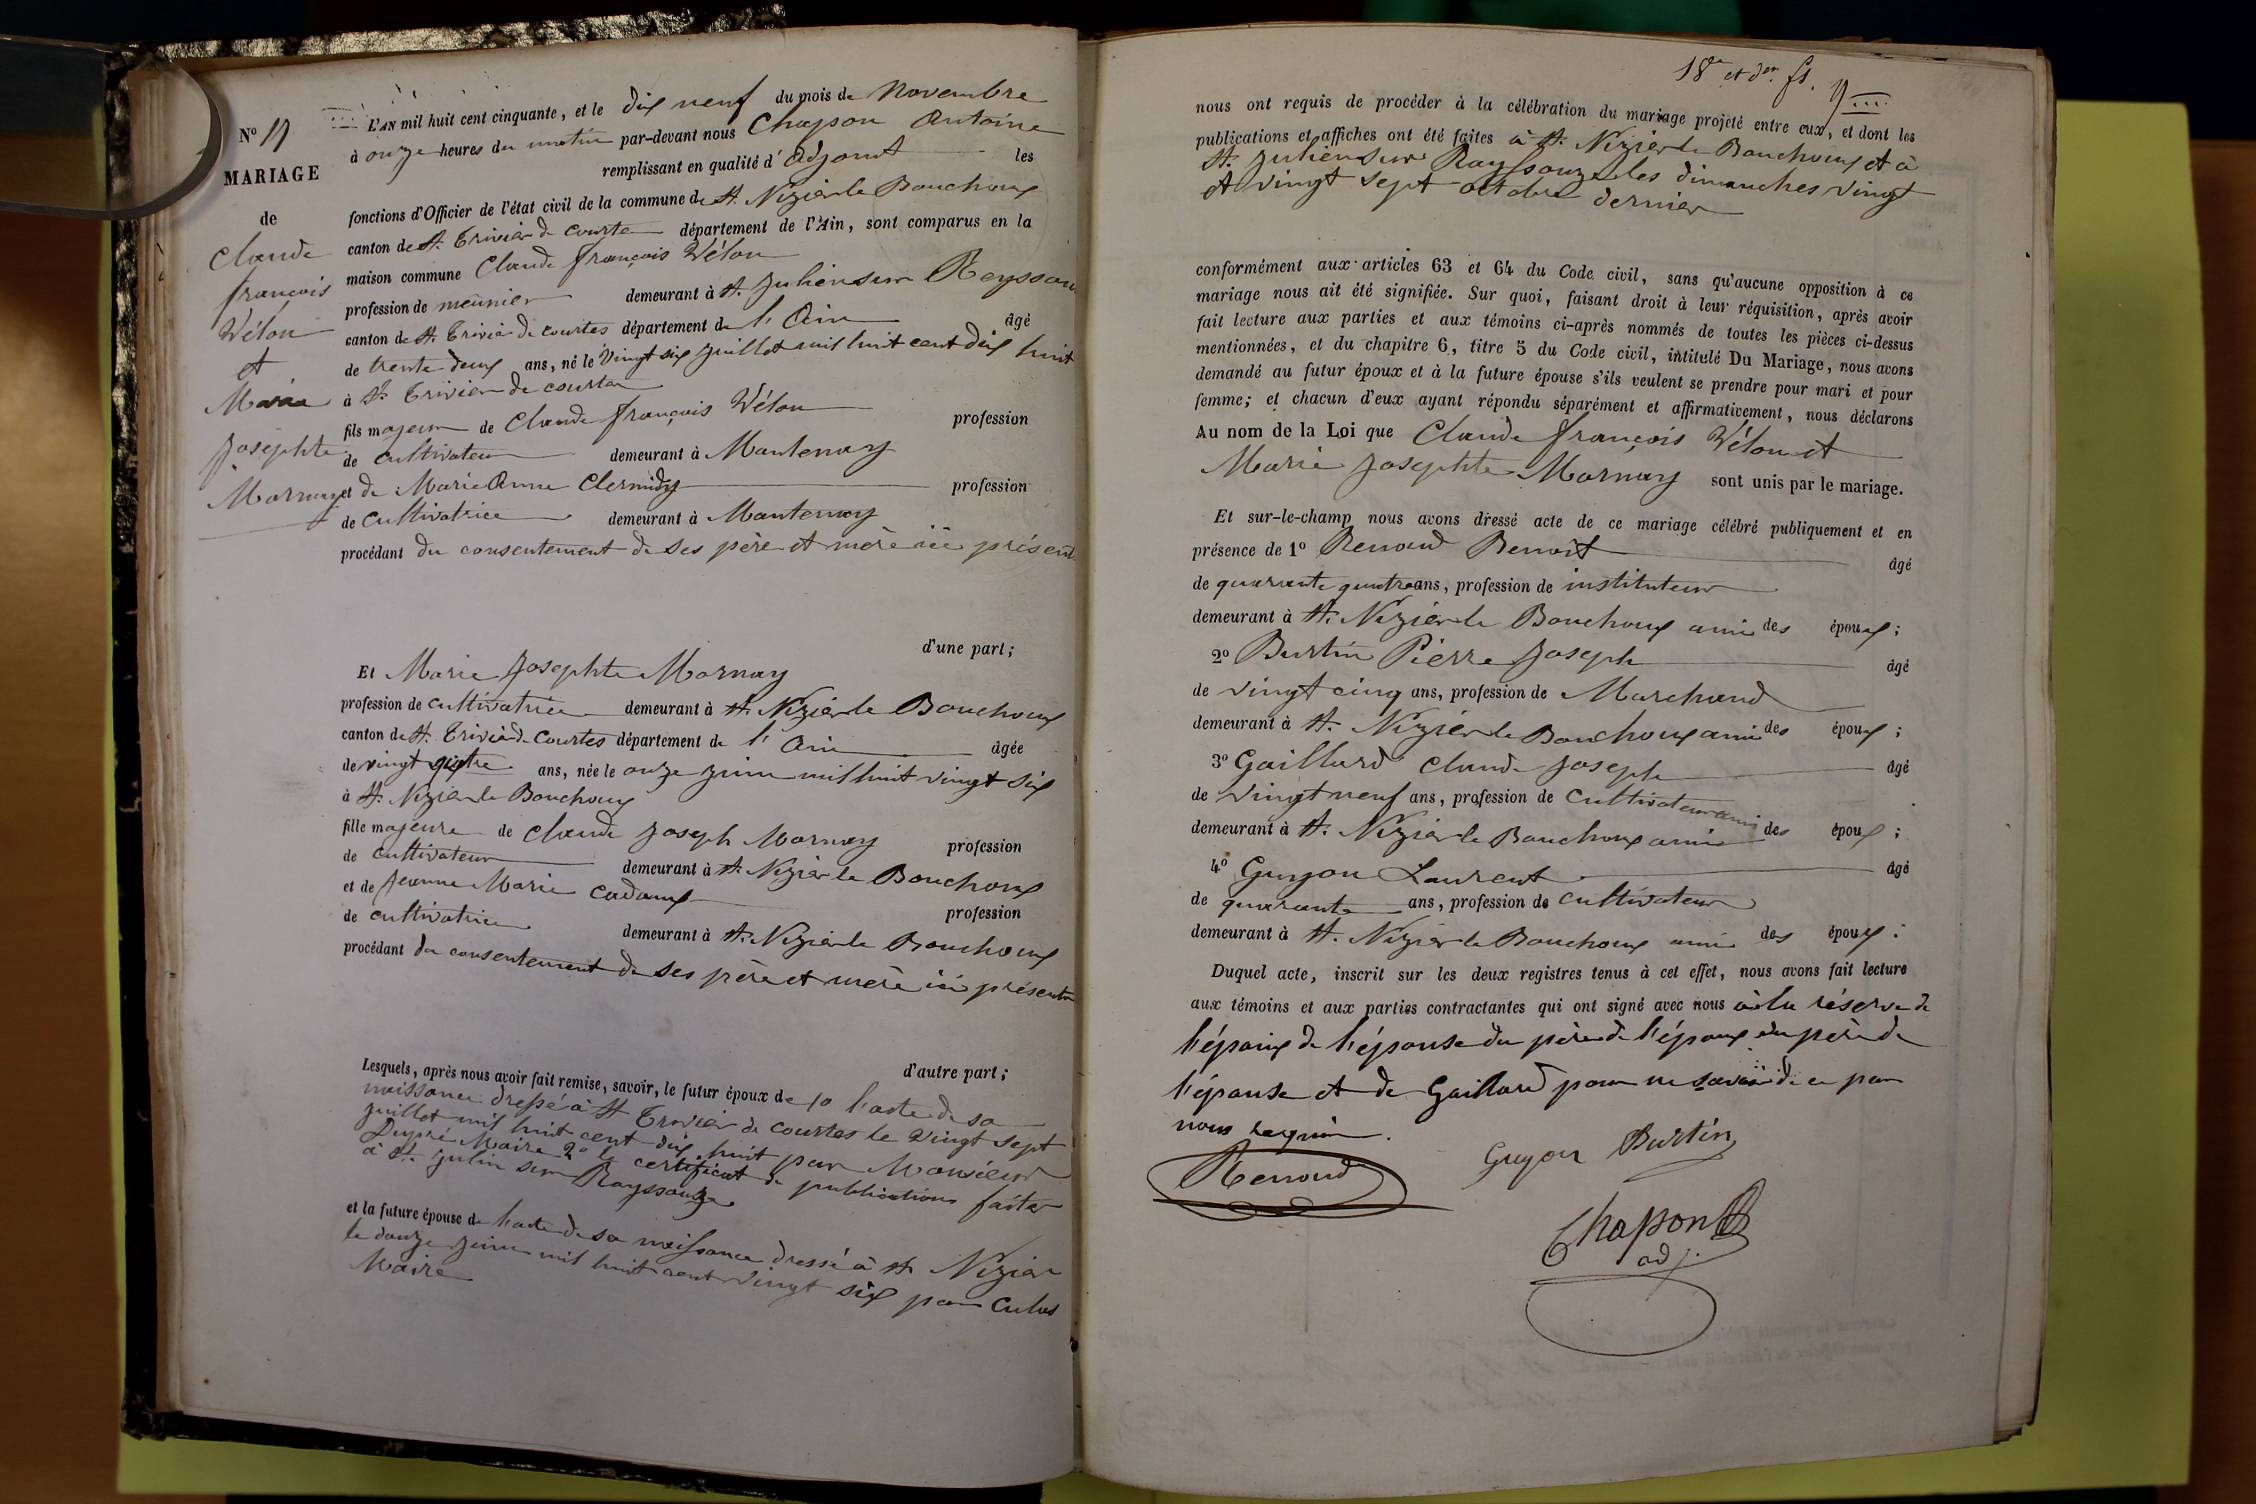 L'AN mil huit cent cinquante, et le dix neuf du mois de Novembre
à onze heures du matin par-devant nous Chapon Antoine
remplissant en qualité d'adjoint les
fonctions d'Officier de l'état civil de la commune de St. Nizier le Bouchoux
canton de St. Trivier de Courte département de l'Ain, sont comparus en la
maison commune Claude françois Vélon
profession de meûnier demeurant à St. Julien sur Reyssouz
canton de St. Trivier de courtes département de l'Ain âgé
de trente deux ans, né le vingt six juillet mil huit cent dix huit
à St. Trivier de courtes
fils majeur de Claude françois Vélon profession
de cultivateur demeurant à Mantenay
et de Marie Anne Clermidy profession
de Cultivatrice demeurant à Mantenay
procédant du consentement de ses père et mère ici présents
d'une part;
Et Marie Josephte Mornay
profession de cultivatrice demeurant à St. Nizier le Bouchoux
canton de St. Trivier de Courtes département de l'Ain âgée
de vingt quatre ans, née le onze juin mil huit vingt six
à St. Nizier le Bouchoux
fille majeure de Claude Joseph Mornay profession
de cultivateur demeurant à St. Nizier le Bouchoux
et de Jeanne Marie Cadoux profession
de cultivatrice demeurant à St. Nizier le Bouchoux
procédant du consentement de ses père et mère ici présents
d'autre part;
Lesquels, après nous avoir fait remise, savoir, le futur époux de 1o l'acte de sa
naissance dressé à St Trivier de courtes le vingt sept
juillet mil huit cent dix huit par Monsieur
Dupré Maire 2o le certificat de publications faites
à St. Julien sur Reyssouze
et la future épouse de l'acte de sa naissance dressé à St Nizier
le douze juin mil huit cent vingt six par Culas
Maire
No 17
MARIAGE
de
Claude
françois
Vélon
et
Marie
Josephte
Mornay
18e et der ft.
nous ont requis de procéder à la célébration du mariage projeté entre eux, et dont les
publications et affiches ont été faites à St. Nizier le Bouchoux et à
St. Julien sur Reyssouze les dimanches vingt
et vingt sept octobre dernier
conformément aux articles 63 et 64 du Code civil, sans qu'aucune opposition à ce
mariage nous ait été signifiée. Sur quoi, faisant droit à leur réquisition, après avoir
fait lecture aux parties et aux témoins ci-après nommés de toutes les pièces ci-dessus
mentionnées, et du chapitre 6, titre 5 du Code civil, intitulé Du Mariage, nous avons
demandé au futur époux et à la future épouse s'ils veulent se prendre pour mari et pour
femme; et chacun d'eux ayant répondu séparément et affirmativement, nous déclarons
Au nom de la Loi que Claude françois Vélon et
Marie Josephte Mornay sont unis par le mariage.
Et sur-le-champ nous avons dressé acte de ce mariage célébré publiquement et en
présence de 1o Renoud Benoit âgé
de quarante quatre ans, profession de instituteur
demeurant à St. Nizier le Bouchoux ami des époux;
2o Burtin Pierre Joseph âgé
de vingt cinq ans, profession de Marchand
demeurant à St. Nizier le Bouchoux ami des époux;
3o Gaillard Claude Joseph âgé
de vingt neuf ans, profession de Cultivateur ami
demeurant à St. Nizier le Bouchoux ami des époux;
4o Guyon Laurent âgé
de quarante ans, profession de Cultivateur
demeurant à St. Nizier le Bouchoux ami des époux.
Duquel acte, inscrit sur les deux registres tenus à cet effet, nous avons fait lecture
aux témoins et aux parties contractantes qui ont signé avec nous à la réserve de
l'époux de l'épouse du père de l'époux du père de
l'épouse et de Gaillard pour ne savoir de ce par
nous requis.
Renoud
Guyon Burtin
Chapon
adj.